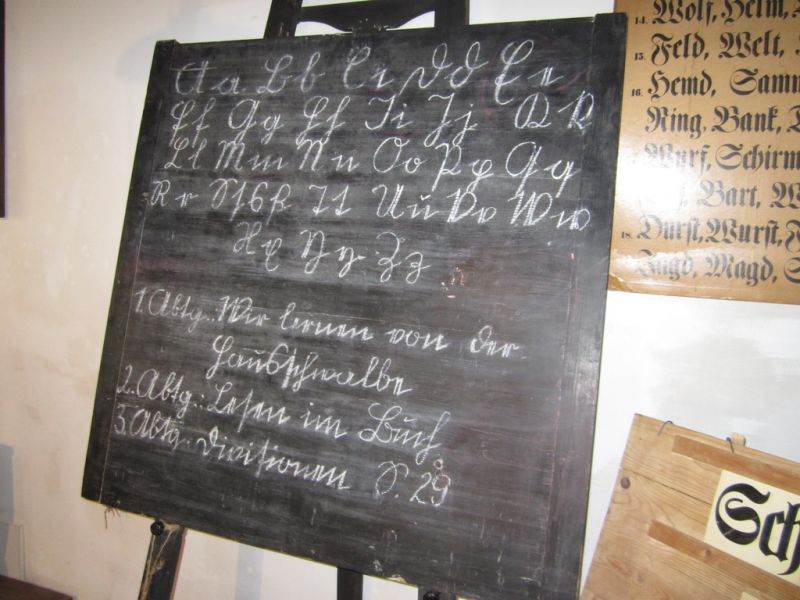 A a B b C c D d E e
F f G g H h I i J j K k
L l M m N n O o P p Q q
R r S ſ s ß T t U u V v W w
X x Y y Z z
1. Abtg.: Wir lernen von der
Hausschwalbe
2. Abtg.: Leſen im Buch
3. Abtg.: Diviſionen S. 29
14. Wolf, Helm,
15. Feld, Welt,
16. Hemd,
Ring, Bank,
Wurf, Schirm
Bart,
18. Durſt, Wurſt,
Jagd, Magd,
Sch